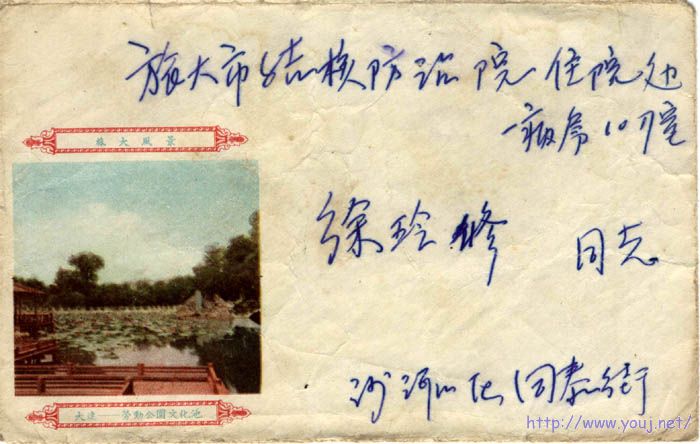 旅大市结核防治院住院处
病房10号室
旅大風景
徐玲修 同志
大連——勞動公園文化池
沙河口区同泰街
http://www.youj.net/